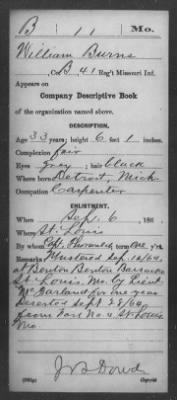 B | 11 | Mo.
William Burns
Co. B, 41 Reg't Missouri Inf.
Appears on
Company Descriptive Book
of the organization named above.
DESCRIPTION.
Age 33 years; height 6 feet 1 inches.
Complexion fair
Eyes gray; hair black
Where born Detroit, Mich.
Occupation Carpenter
ENLISTMENT.
When Sep. 6, 186 .
Where St. Louis
By whom Capt. term one y'rs.
Remarks Mustered Sep. 10/64,
at Benton Barracks
St. Louis, Mo. by Lieut
McGarland for one year
Deserted Sept. 28/64
from Fort No 4 St. Louis
Mo.
J B Dowd
Copyist.